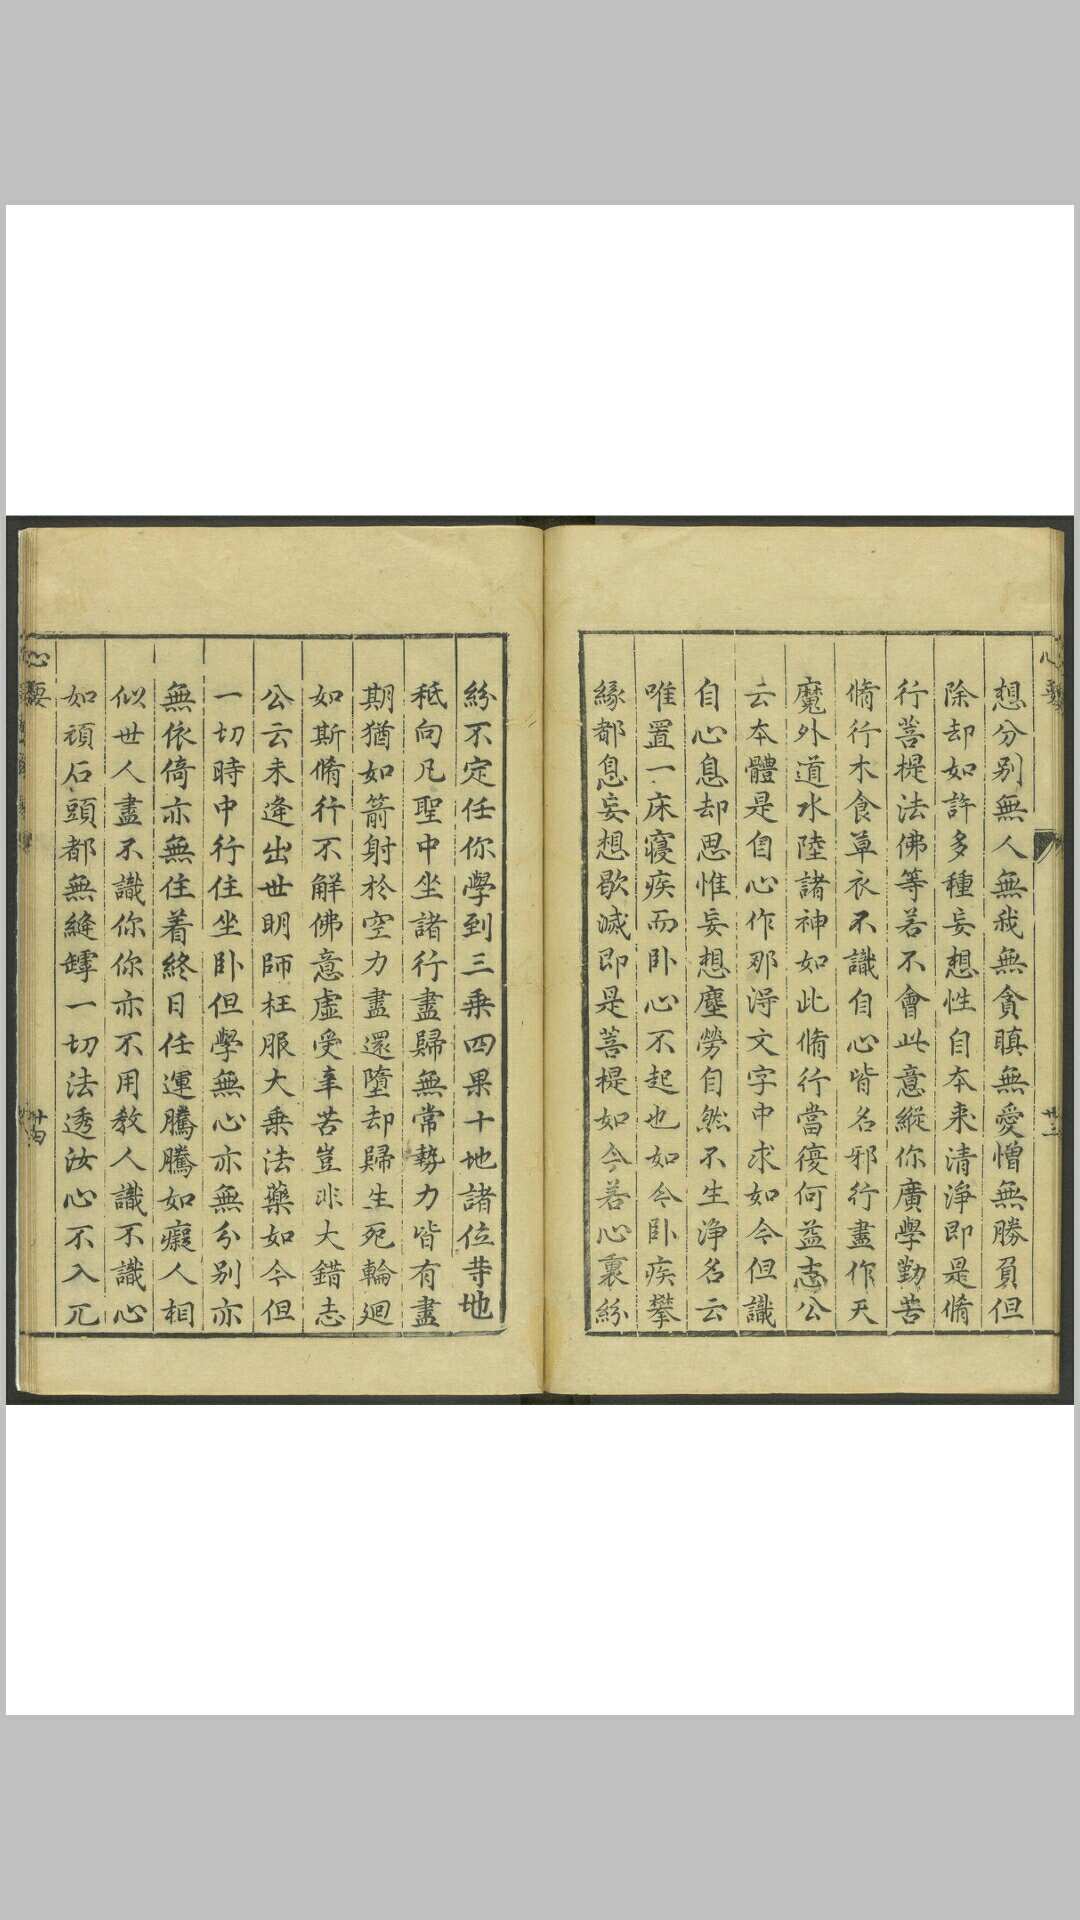 想分别無人無我無貪瞋無愛憎無勝負但
除却如許多種妄想性自本来清淨即是脩
行菩提法佛等若不會此意縱你廣學勤苦
脩行木食草衣不識自心皆名邪行盡作天
魔外道水陸諸神如此脩行當復何益志公
云本體是自心作那淂文字中求如今但識
自心息却思惟妄想塵勞自然不生淨名云
唯置一床寑疾而卧心不起也如今卧疾攀
緣都息妄想歇滅即是菩提如今若心裏紛
紛不定任你學到三乘四果十地諸位等地
秪向凡聖中坐諸行盡歸無常勢力皆有盡
期猶如箭射於空力盡還墮却歸生死輪廻
如斯脩行不解佛意虛受辛苦豈非大錯志
公云未逢出世明師枉服大乘法藥如今但
一切時中行住坐卧但學無心亦無分别亦
無依倚亦無住着終日任運騰騰如癡人相
似世人盡不識你你亦不用教人識不識心
如頑石頭都無縫罅一切法透汝心不入兀
心要
廿四
廿三